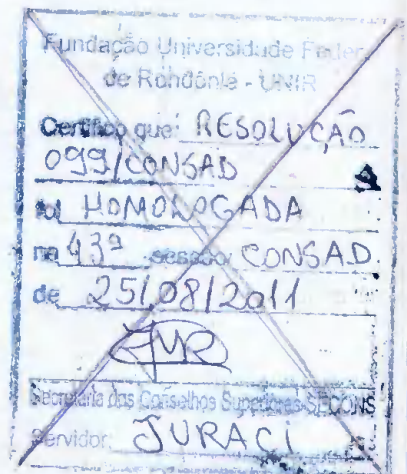 Fundação Universidade Feder
de Rondônia - UNIR
Certifico que: RESOLUÇÃO
099/CONSAD
foi HOMOLOGADA
na 43ª sessão CONSAD
de 25/08/2011
Secretaria dos Conselhos Superiores-SECONS
Servidor: JURACI